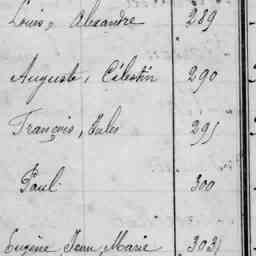 Louis, Alexandre 289
Auguste, Célestin 290
François, Jules 295
Paul 300
Eugène Jean Marie 303